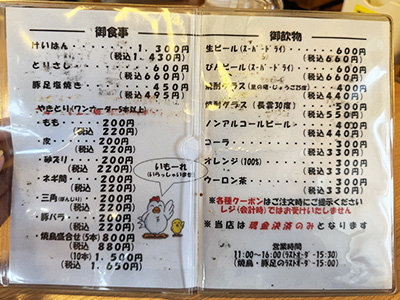 御食事
けいはん・・・・・・1.300円
(税込1.430円)
とりさし・・・・・・600円
(税込660円)
豚足塩焼き・・・・・450円
(税込495円)
やきとり(ワンオーダー5本以上)
・もも・・・・・・200円
(税込 220円)
・皮・・・・・・・200円
(税込 220円)
・砂ズリ・・・・・200円
(税込 220円)
・ネギ間・・・・・200円
(税込 220円)
・三角(ぼんじり)・・200円
(税込 220円)
・豚バラ・・・・・200円
(税込 220円)
・焼鳥盛合せ(5本)800円
(税込 880円)
(10本)1.500円
(税込 1.650円)
いもーれ
(いらっしゃいませ)
御飲物
生ビール(スーパードライ)・・・600円
(税込660円)
びんビール(スーパードライ)・・600円
(税込660円)
焼酎グラス(里の曙・じょうご25度)400円
(税込440円)
焼酎グラス(長雲30度)・・500円
(税込550円)
ノンアルコールビール・・400円
(税込440円)
コーラ・・・・・・・300円
(税込330円)
オレンジ(100%)・・・・300円
(税込330円)
ウーロン茶・・・・・300円
(税込330円)
※各種クーポンはご注文時にご提示ください
レジ(会計時)ではお受けいたしません
※当店は現金決済のみとなります
営業時間
11:00〜16:00(ラストオーダー15:30)
(焼鳥・豚足のラストオーダー15:00)